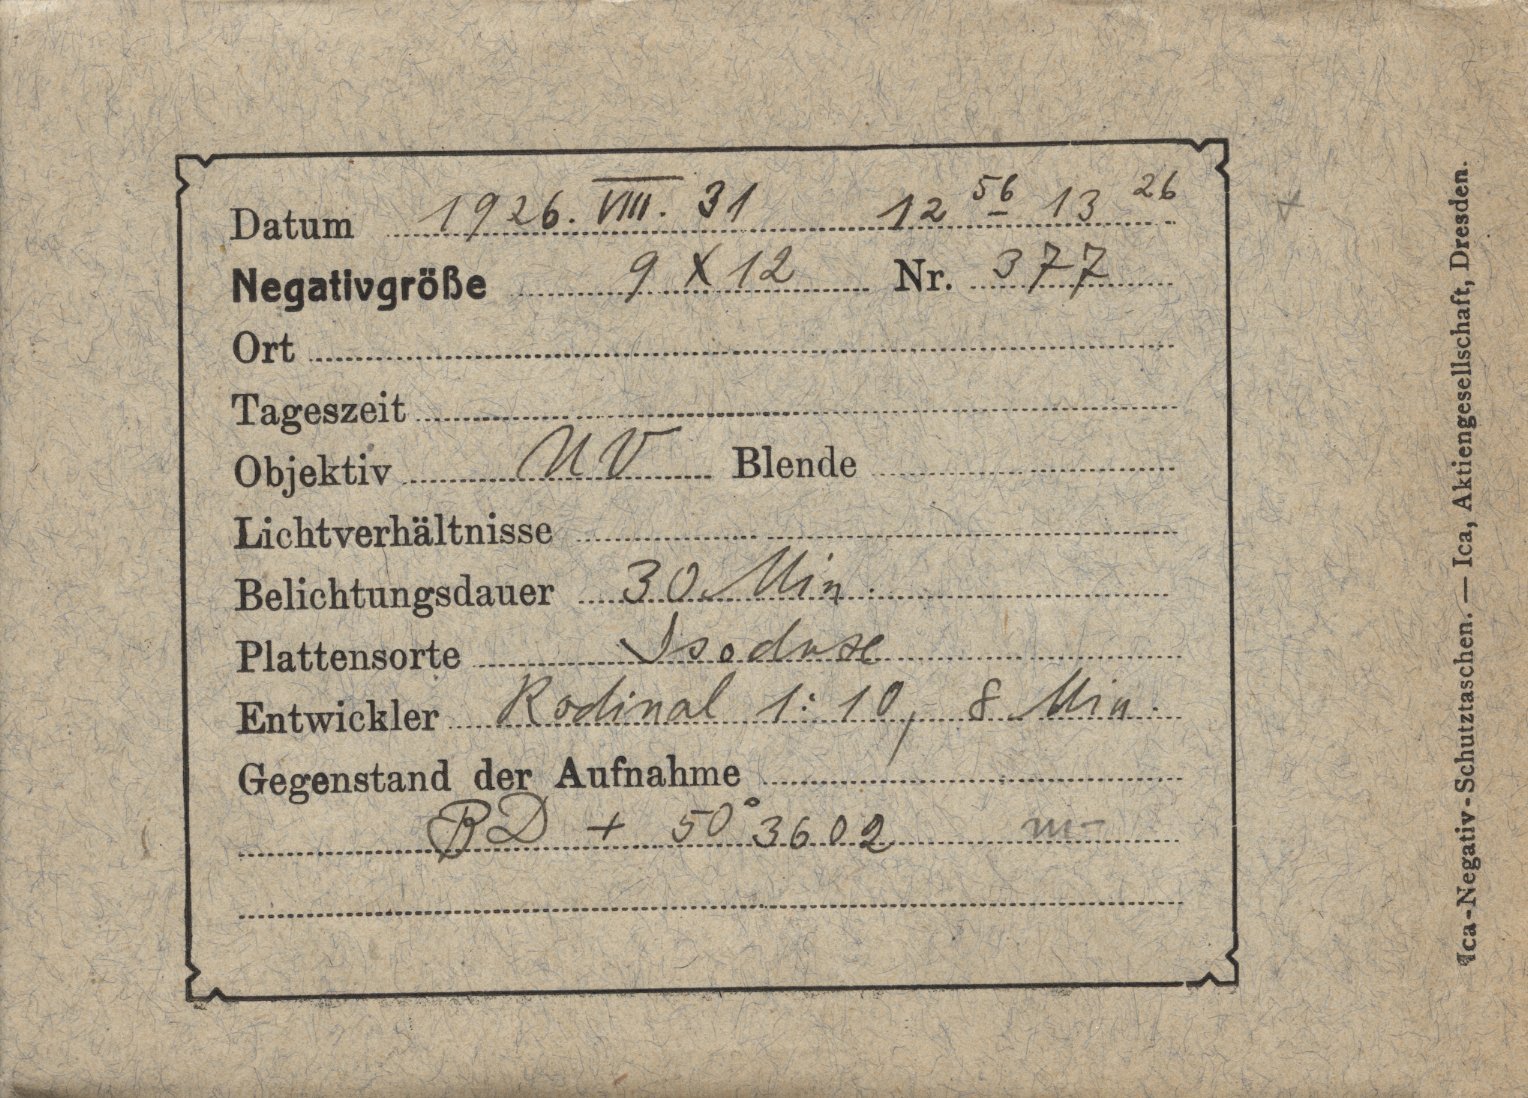 Datum 1926. VIII. 31 12 56 - 13 26
Negativgröße 9 X 12 Nr. 377
Ort
Tageszeit
Objektiv UV Blende
Lichtverhältnisse
Belichtungsdauer 30 Min.
Plattensorte Isoduxe
Entwickler Rodinal 1:10, 8 Min.
Gegenstand der Aufnahme
BD + 50° 3602
Ica-Negativ-Schutztaschen. — Ica, Aktiengesellschaft, Dresden.